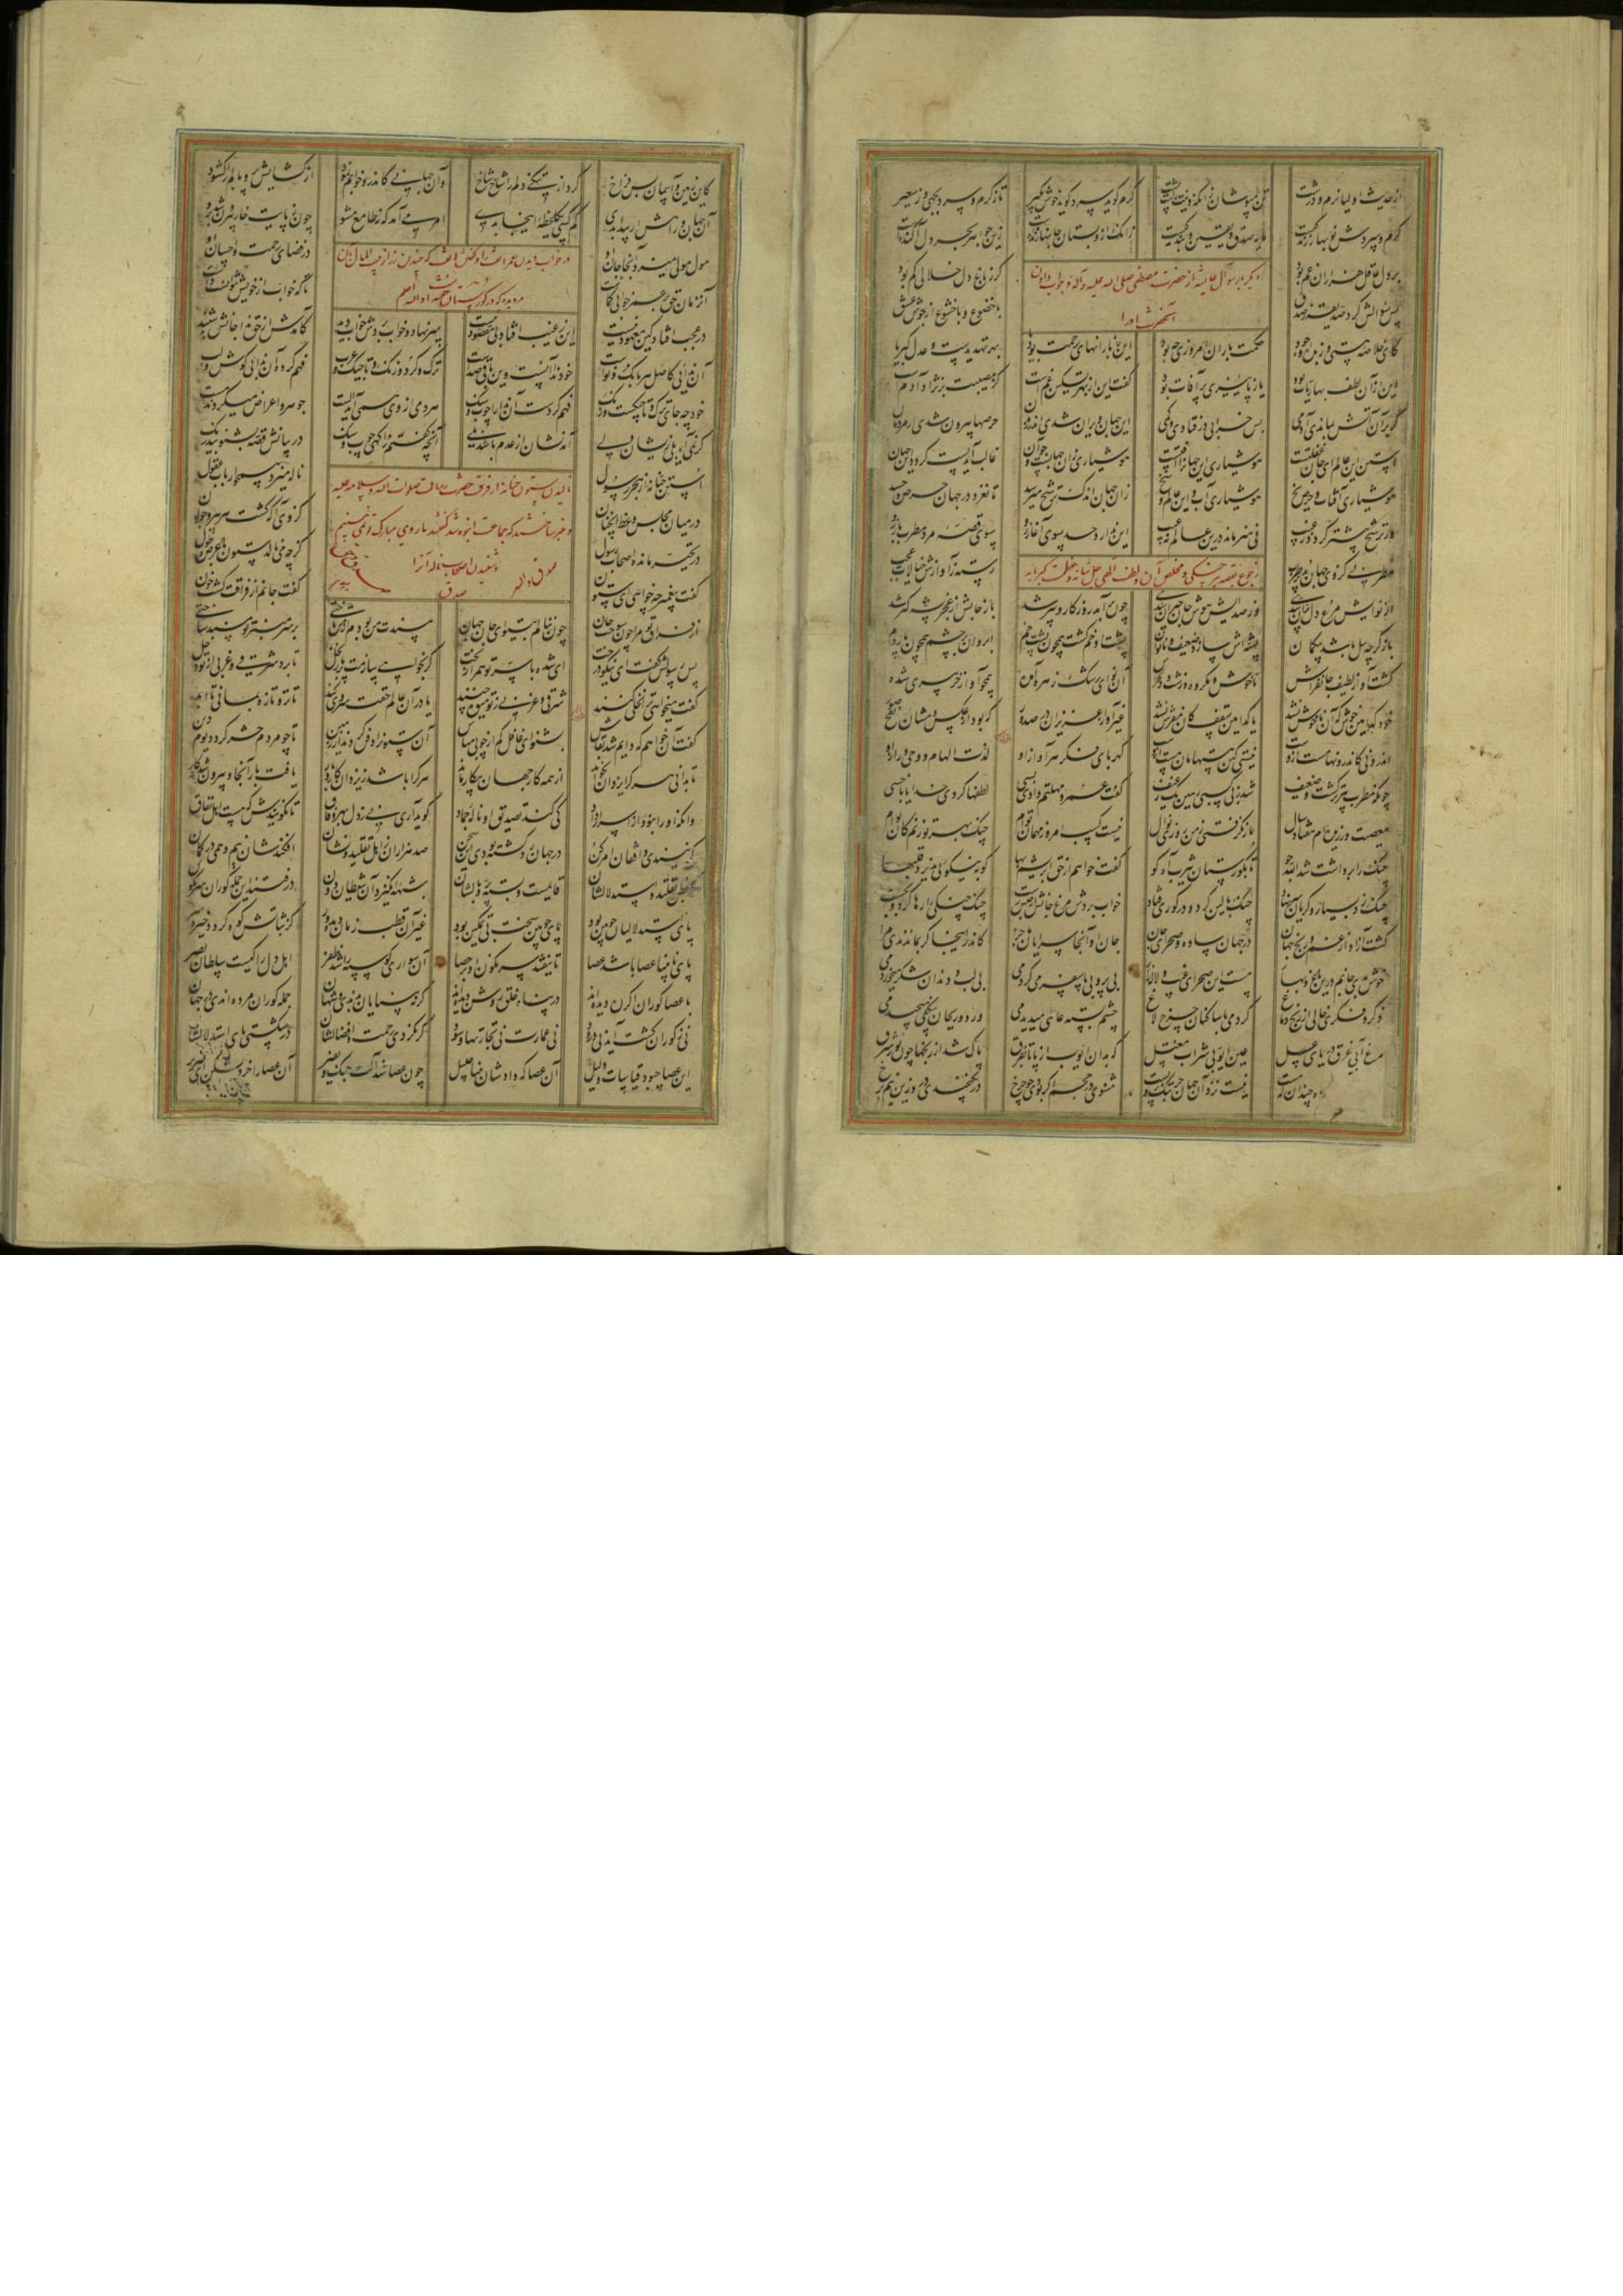 از حدیث اولیا نرم و درشت تن مپوشان زانکه دینت راست پشت گرم گوید سرد گوید خوش بگیر تا ز گرم و سرد بجهی وز سعیر
گرم و سردش نوبهار زندگیست مایه صدق و یقین و بندگیست زانک ازو بستان جانها زنده است زین جواهر بحر دل آگنده است
بر دل عاقل هزاران غم بود گر ز باغ دل خلالی کم بود
سؤال عایشه از حضرت مصطفی صلی الله علیه وآله و جواب دادن
آنحضرت او را
پس سؤالش کرد صدیقه ز صدق با خضوع و با خشوع از جوش عشق
کای خلاصه هستی و زبده وجود حکمت باران امروزی چه بود این ز بارانهای رحمت بود یا بهر تهدیدست و عدل کبریا
این از آن لطف بهاریات بود یا ز پاییزی پر آفات بود گفت این از بهر تسکین غم است کز مصیبت بر نژاد آدم است
گر بر آن آتش بماندی آدمی بس خرابی در فتادی و کمی این جهان ویران شدی اندر زمان حرصها بیرون شدی از مردمان
استن این عالم ای جان غفلتست هوشیاری این جهان را آفتست هوشیاری زان جهانست و چو آن غالب آید پست گردد این جهان
هوشیاری آفتاب و حرص یخ هوشیاری آب و این عالم وسخ زان جهان اندک ترشح میرسد تا نغرد در جهان حرص و حسد
گر ترشح بیشتر گردد ز غیب نی هنر ماند درین عالم نه عیب این ندارد حد سوی آغاز رو سوی قصه مرد مطرب باز رو
رجوع بقصه پیر چنگی و مخلص آن لطف الهی جل شانه
مطربی کز وی جهان شد پر طرب رسته ز آوازش خیالات عجب
از نوایش مرغ دل پران شدی وز صدایش هوش جان حیران شدی چون برآمد روزگار و پیر شد باز جانش از عجز پشه گیر شد
باز گرچه پیل باشد بیگمان پشه‌اش سازد ضعیف و ناتوان پشت او خم گشت همچون پشت خم ابروان بر چشم همچون پاردم
گشت آواز لطیف جانفزاش ناخوش و مکروه و زشت و دلخراش آن نوای رشک زهره آمده همچو آواز خر پیری شده
خود کدامین خوش که آن ناخوش نشد یا کدامین سقف کان مفرش نشد غیر آواز عزیزان در صدور که بود از عکس دمشان نفخ صور
اندرونی کاندرونها مست ازوست نیستی کین هستهامان هست ازوست کهربای فکر هر آواز او لذت الهام و وحی و راز او
چونکه مطرب پیرتر گشت و ضعیف شد ز بی کسبی رهین یک رغیف گفت عمر و مهلتم دادی بسی لطفها کردی خدایا با خسی
معصیت ورزیده‌ام هفتاد سال باز نگرفتی ز من روزی نوال نیست کسب امروز مهمان توام چنگ بهر تو زنم کان توام
چنگ را برداشت شد الله جو تا بگورستان یثرب آه گو گفت خواهم از حق ابریشم بها کو به نیکوی پذیرد قلبها
چنگ زد بسیار و گریان سر نهاد چنگ بالین کرد و در گوری فتاد خواب بردش مرغ جانش از حبس رست چنگ و چنگی را رها کرد و بجست
گشت آزاد از غم و رنج جهان در جهان ساده و صحرای جان جان او آنجا سرایان ماجرا کاندر اینجا گر بماندندی مرا
خوش بدی جانم درین باغ و بهار مست این صحرای غیب و لاله‌زار بی پر و بی پا سفر می‌کردمی بی لب و دندان شکر میخوردمی
ذکر و فکری خالی از رنج دماغ کردمی با ساکنان چرخ لاغ چشم بسته عالمی میدیدمی ورد و ریحان بی کفی میچیدمی
مرغ آبی غرق دریای عسل عین ایوبی شراب مغتسل که بدان ایوب از پا تا بفرق پاک شد از رنجها چون نور شرق
نیست نزد آن جهان جز تنگ و پست مثنوی در حجم گر بودی چو چرخ در نگنجیدی درو زین نیم برخ
کان زمین و آسمان بس فراخ کرد از تنگی دلم را شاخ شاخ وآن جهانی کاندر خوابم نمود از گشایش پر و بالم را گشود
آن جهان و راهش ار پیدا بدی کم کسی یک لحظه اینجا بدی امر می‌آمد که نی طامع مشو چون ز پایت خار بیرون شد برو
مول مولی میزد آنجا جان او در فضای رحمت و احسان او
در خواب دیدن عمر هاتف را و گفتن هاتف که چندین زر از بیت المال بدان
مرد بده که در گورستان خفته
آن زمان حق بر عمر خوابی گماشت تا که خویش از خواب نتوانست داشت
در عجب افتاد کین معهود نیست این ز غیب افتاد بی مقصود نیست سر نهاد و خواب بردش خواب دید کامدش از حق ندا جانش شنید
آن ندایی کاصل هر بانگ و نواست خود ندا آنست و این باقی صداست ترک و کرد و زنگ و تاجیک و عرب فهم کرده آن ندا بی گوش و لب
خود چه جای ترک و تاجیکست و زنگ فهم کردست آن ندا را چوب و سنگ هر دمی از وی همی آید الست جوهر و اعراض میگردند هست
گر نمی‌آید بلی زیشان ولی آمدنشان از عدم باشد بلی آنچه گفتم ز آگهی چوب و سنگ در بیانش قصه بشنو بیدرنگ
نالیدن ستون حنانه از فراق حضرت رسالت صلوات الله و سلامه علیه
که جماعت انبوه شد گفتند ما روی مبارک تو نمی بینیم
و شنیدن اصحاب ناله آنرا
استن حنانه از هجر رسول ناله میزد همچو ارباب عقول
در میان مجلس وعظ آنچنان کز وی آگه گشت هم پیر و جوان
در تحیر مانده اصحاب رسول کز چه می‌نالد ستون با عرض و طول
گفت پیغمبر چه خواهی ای ستون گفت جانم از فراقت گشت خون
از فراق تو مرا چون سوخت جان چون ننالم بیتو ای جان جهان مسندت من بودم از من تاختی بر سر منبر تو مسند ساختی
پس رسولش گفت ای نیکو درخت ای شده با سر تو همراز بخت
گفت میخواهی ترا نخلی کنند شرقی و غربی ز تو میوه چنند یا در آن عالم حقت سروی کند تا تر و تازه بمانی تا ابد
گفت آن خواهم که دایم شد بقاش بشنو ای غافل کم از چوبی مباش آن ستون را دفن کرد اندر زمین تا چو مردم حشر گردد یوم دین
تا بدانی هر که را یزدان بخواند از همه کار جهان بیکار ماند هر که را باشد ز یزدان کار و بار یافت بار آنجا و بیرون شد ز کار
وانکه او را نبود از اسرار داد کی کند تصدیق او ناله جماد گوید آری نی ز دل بهر وفاق تا نگویندش که هست اهل نفاق
گر نیندی واقفان امر کن در جهان رد گشته بودی این سخن صد هزاران ز اهل تقلید و نشان افکندشان نیم وهمی در گمان
که بظن تقلید و استدلالشان قایمست و بسته پر و بالشان شبهه انگیزد آن شیطان دون در فتند این جمله کوران سرنگون
پای استدلالیان چوبین بود پای چوبین سخت بی تمکین بود غیر آن قطب زمان دیده‌ور کز ثباتش کوه گردد خیره سر
پای نابینا عصا باشد عصا تا نیفتد سرنگون او بر حصا آن سواری کو سپه را شد ظفر اهل دل را کیست سلطان بصر
با عصا کوران اگر ره دیده‌اند در پناه خلق روشن دیده‌اند گر نه بینایان بدندی و شهان جمله کوران مرده‌اندی در جهان
نی ز کوران کشت آید نی درود نی عمارت نی تجارتها و سود گر نکردی رحمت و افضالشان در شکستی پای استدلالشان
این عصا چبود قیاسات و دلیل آن عصا که دادشان بینا جلیل چون عصا شد آلت جنگ و نفیر آن عصا را خرد بشکن ای ضریر